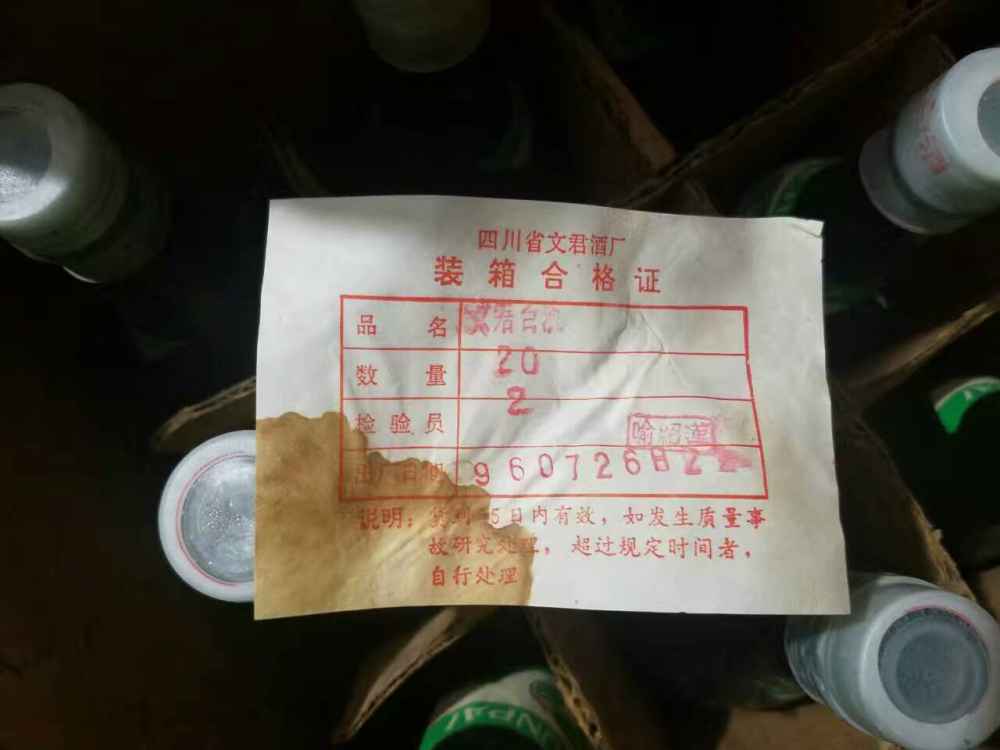 四川省文君酒厂
装箱合格证
品名
数量 20
2
检验员 喻绍莲
出厂日期 960726822
说明：货到15日内有效，如发生质量事
故研究处理，超过规定时间者，
自行处理